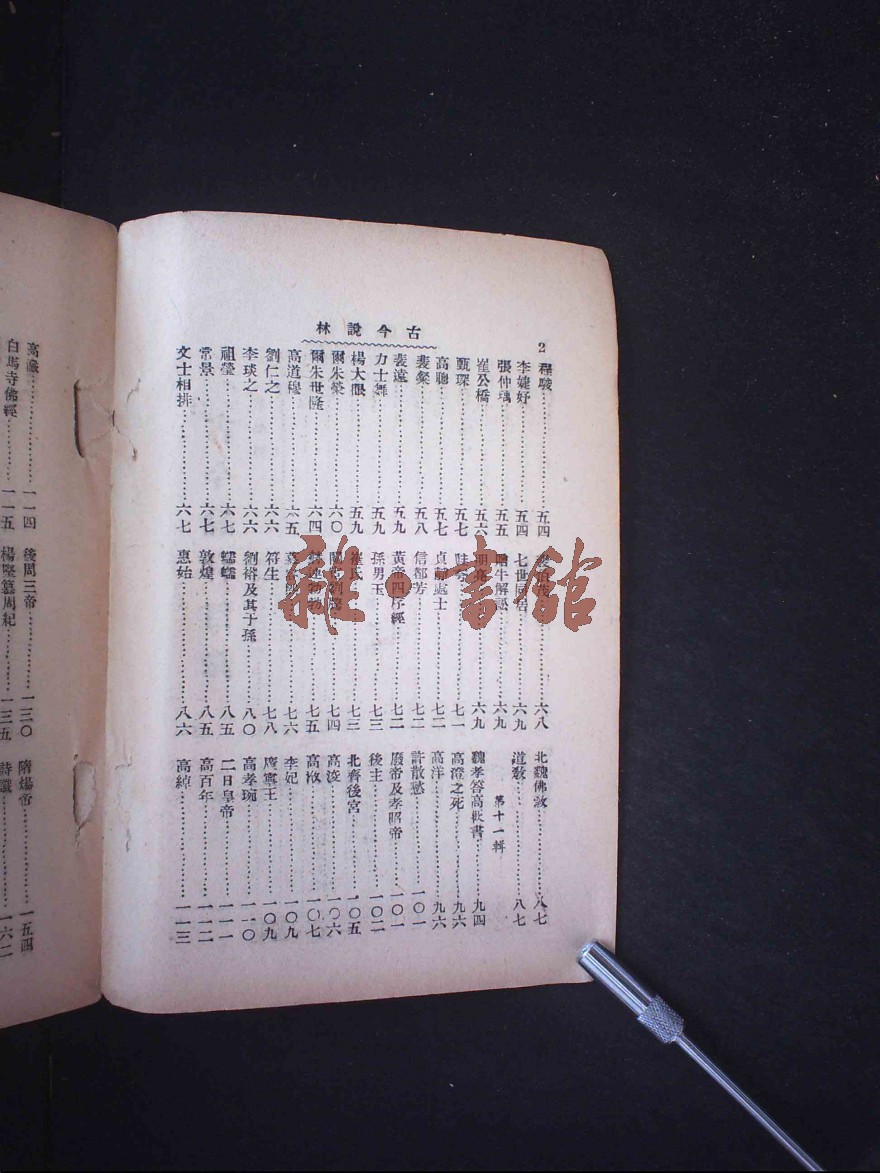 古今說林
2
程駿……五四
李婕妤……五四
張仲瑀……五五
崔公橋……五六
甄琛……五七
高聰……五七
裴粲……五八
裴遠……五九
力士舞……五九
楊大眼……五九
爾朱榮……六〇
爾朱世隆……六四
高道穆……六五
劉仁之……六六
李琰之……六六
祖瑩……六七
常景……六七
文士相排……六七
……六八
七世同居……六九
牛解……六九
……六九
……七一
貞靜處士……七二
信都芳……七二
黃帝四序經……七二
孫男玉……七三
崔氏……七三
……七四
……七五
……七六
符生……七八
劉裕及其子孫……八〇
蠕蠕……八五
敦煌……八五
惠始……八六
北魏佛敎……八七
道敎……八七
第十一輯
魏孝答高歡書……九四
高澄之死……九六
高洋……九六
許散愁……一〇一
廢帝及孝昭帝……一〇一
後主……一〇二
北齊後宮……一〇五
高浚……一〇六
高悛……一〇七
李妃……一〇九
廣寧王……一〇九
高孝琬……一一〇
二日皇帝……一一一
高百年……一一二
高綽……一一三
高……一一四
白馬寺佛經……一一五
後周三帝……一三〇
楊堅簒周紀……一三五
隋煬帝……一五四
詩讖……一六二
雜·書館